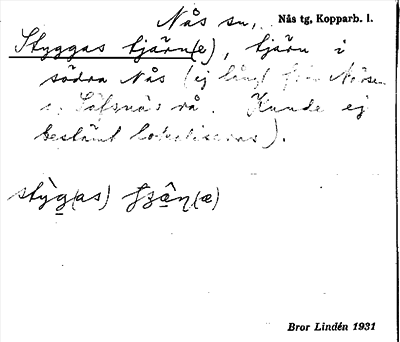 Nås sn, Nås tg, Kopparb. l.
Styggas tjärn(e), tjärn i
södra Nås (ej långt från Nåsen
i Säfsnäs rå. Kunde ej
bestämt lokaliseras).
stỳg(as)
Bror Lindén 1931